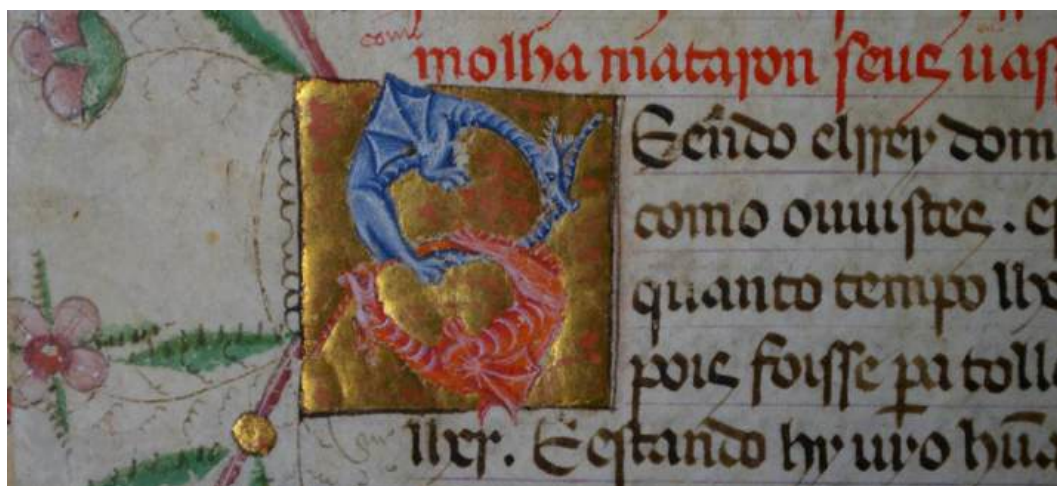 como
molha mataron seus uas
Sẽndo elrrey dom
como ouuistes . e
quanto tempo lh
pois foisse pa toll
lher . E estando hy uẏo hũa